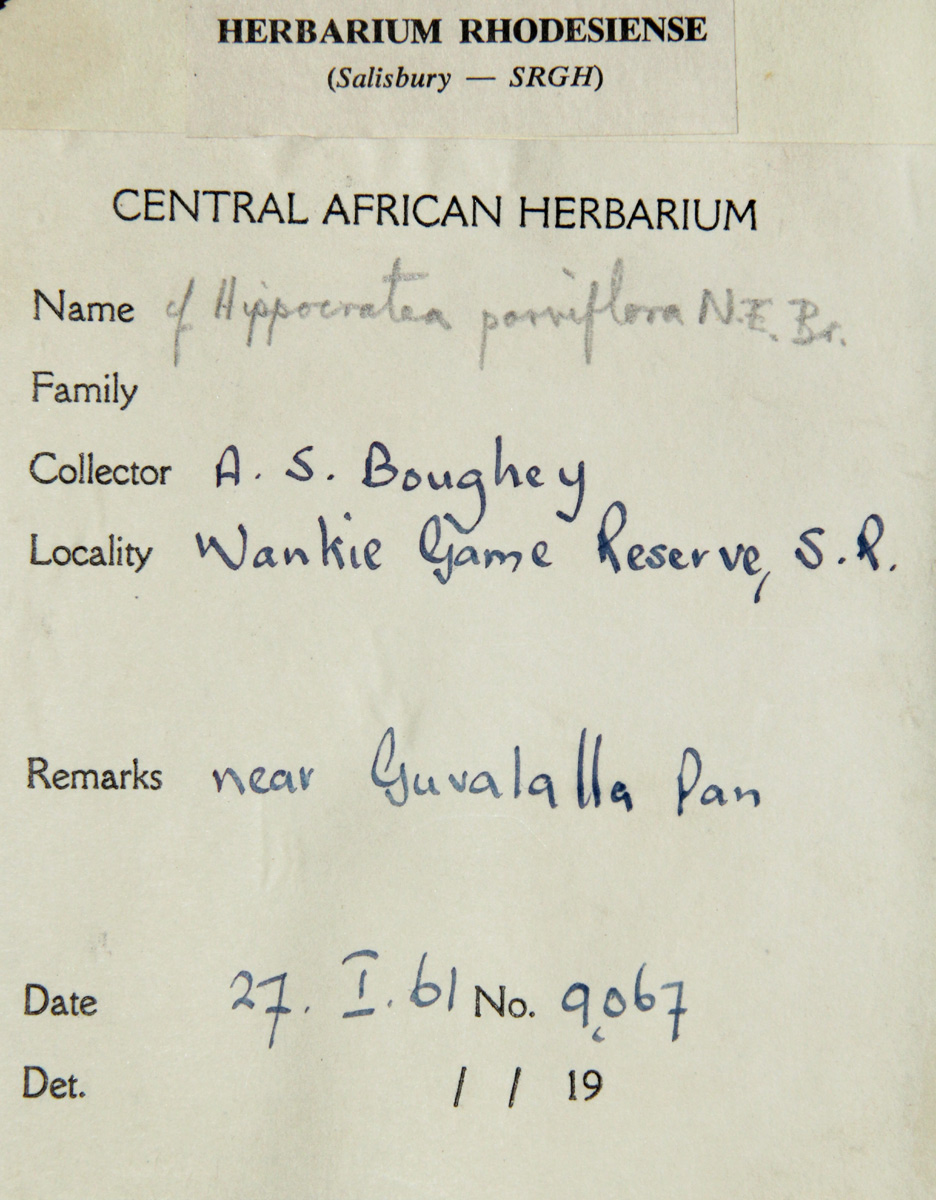 HERBARIUM RHODESIENSE
(Salisbury — SRGH)
CENTRAL AFRICAN HERBARIUM
Name cf Hippocratea parviflora N.E. Br.
Family
Collector A. S. Boughey
Locality Wankie Game Reserve, S.R.
Remarks near Guvalalla Pan
Date 27. I. 61 No. 9,067
Det. / / 19